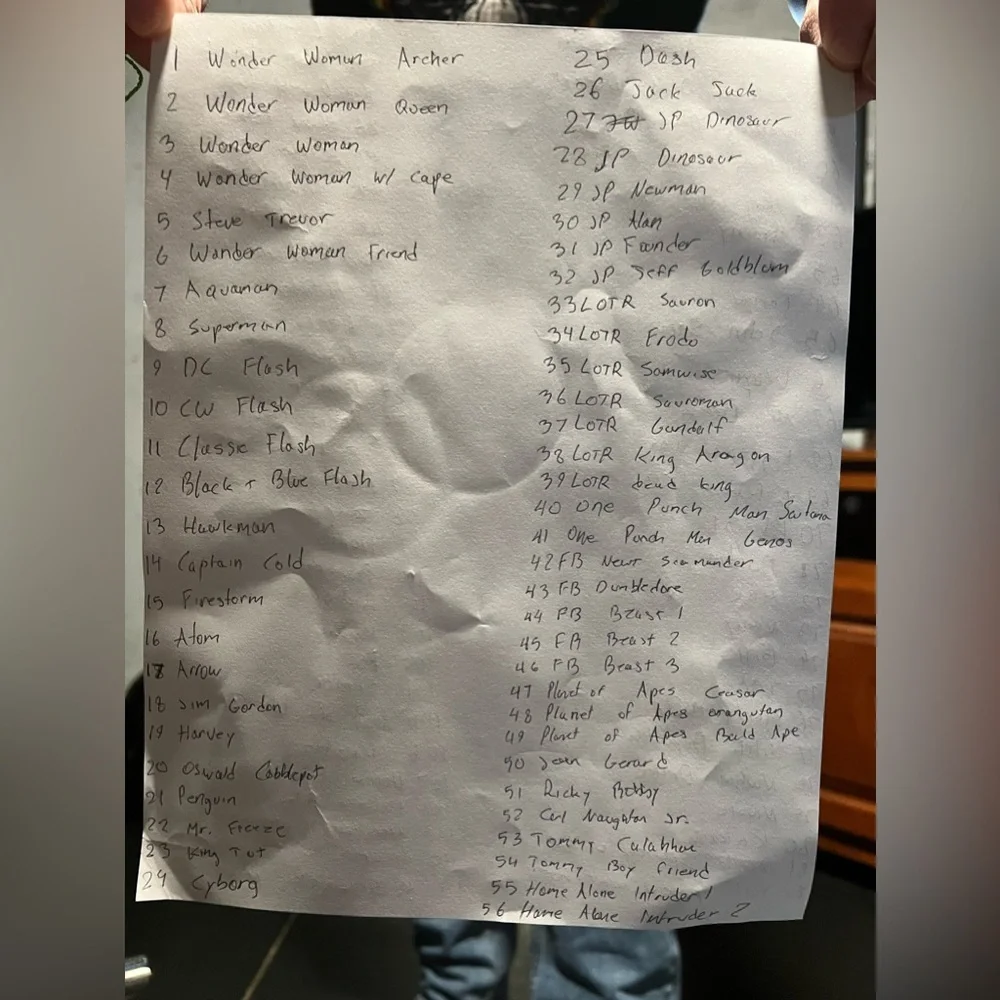 1 Wonder Woman Archer
2 Wonder Woman Queen
3 Wonder Woman
4 Wonder Woman w/ cape
5 Steve Trevor
6 Wonder Woman Friend
7 Aquaman
8 Superman
9 DC Flash
10 CW Flash
11 Classic Flash
12 Black + Blue Flash
13 Hawkman
14 Captain Cold
15 Firestorm
16 Atom
17 Arrow
18 Jim Gordon
19 Harvey
20 Oswald Cobblepot
21 Penguin
22 Mr. Freeze
23 King Tut
24 Cyborg
25 Dash
26 Jack Jack
27 JP Dinosaur
28 JP Dinosaur
29 JP Newman
30 JP Alan
31 JP Founder
32 JP Jeff Goldblum
33 LOTR Sauron
34 LOTR Frodo
35 LOTR Samwise
36 LOTR Sauroman
37 LOTR Gandalf
38 LOTR King Aragon
39 LOTR dead king
40 One Punch Man Saitama
41 One Punch Man Genos
42 FB Newt Scamander
43 FB Dumbledore
44 FB Beast 1
45 FB Beast 2
46 FB Beast 3
47 Planet of Apes Ceasar
48 Planet of Apes orangutan
49 Planet of Apes Bald Ape
50 Jean Gerard
51 Ricky Bobby
52 Cal Naughton Jr.
53 Tommy Calahhue
54 Tommy Boy friend
55 Home Alone Intruder 1
56 Home Alone Intruder 2